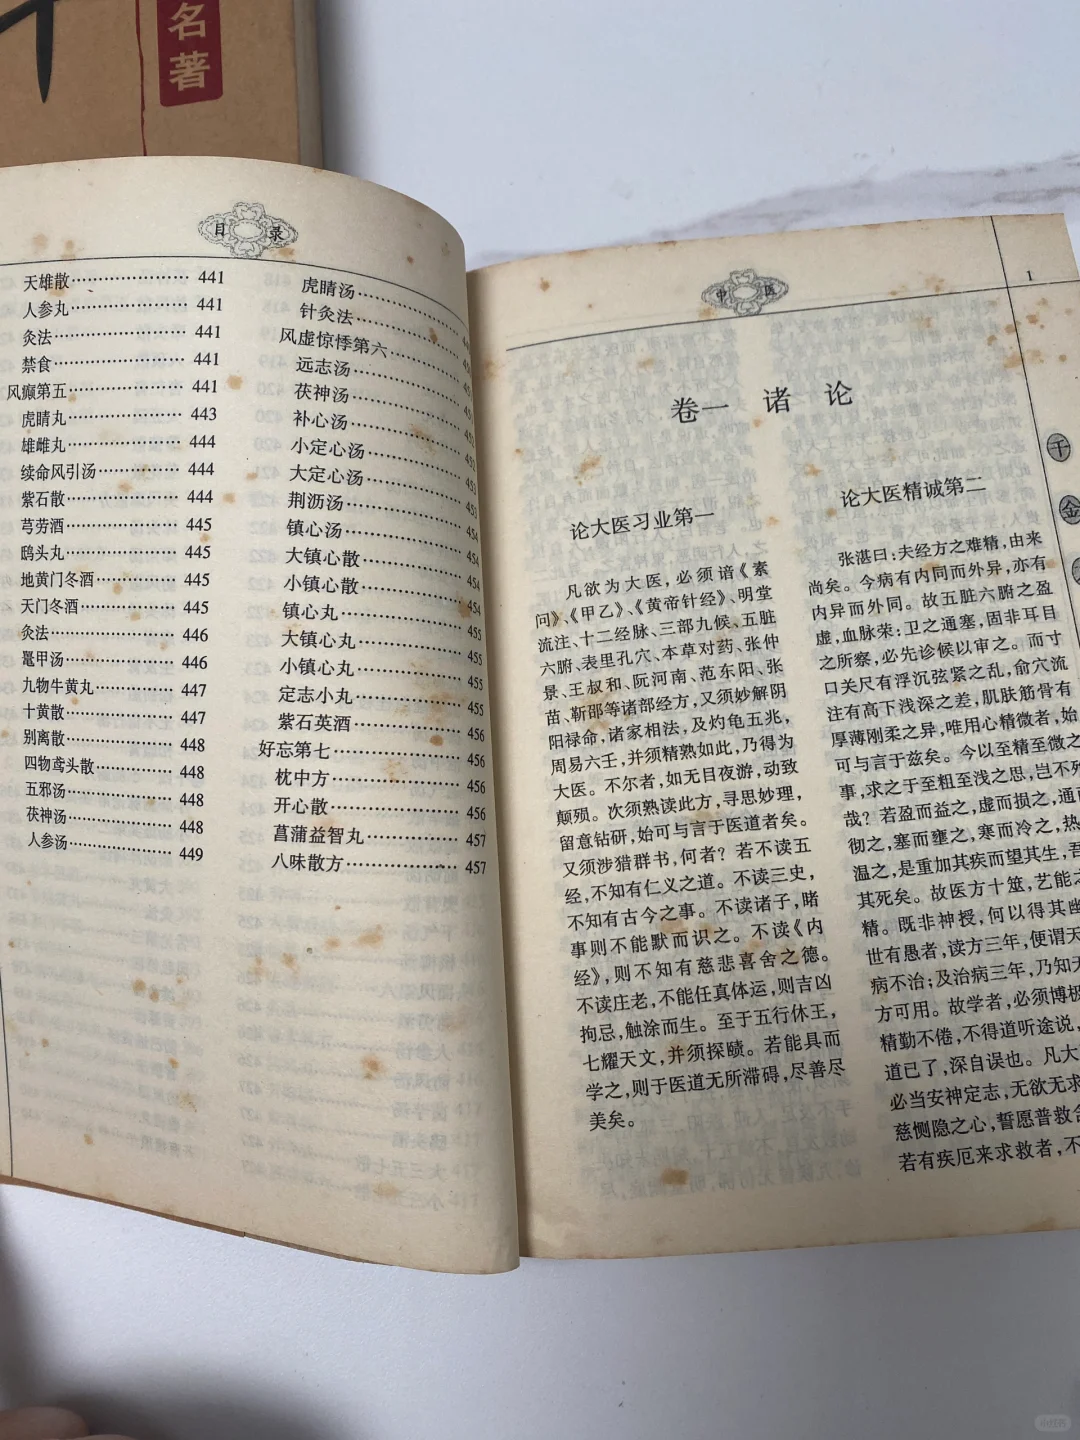 名
著
目录
天雄散 441
人参丸 441
灸法 441
禁食 441
风癫第五 441
虎睛丸 443
雄雌丸 444
续命风引汤 444
紫石散 444
芎劳酒 445
鸱头丸 445
地黄门冬酒 445
天门冬酒 445
灸法 446
鼍甲汤 446
九物牛黄丸 447
十黄散 447
别离散 448
四物鸢头散 448
五邪汤 448
茯神汤 448
人参汤 449
虎睛汤
针灸法
风虚惊悸第六
远志汤
茯神汤
补心汤
小定心汤
大定心汤 453
荆沥汤 453
镇心汤 454
大镇心散 454
小镇心散 454
镇心丸 455
大镇心丸 455
小镇心丸 455
定志小丸 455
紫石英酒 456
好忘第七 456
枕中方 456
开心散 456
菖蒲益智丸 457
八味散方 457
中医
1
卷一 诸论
论大医习业第一
凡欲为大医，必须谙《素
问》、《甲乙》、《黄帝针经》、明堂
流注、十二经脉、三部九候、五脏
六腑、表里孔穴、本草对药、张仲
景、王叔和、阮河南、范东阳、张
苗、靳邵等诸部经方，又须妙解阴
阳禄命，诸家相法，及灼龟五兆，
周易六壬，并须精熟如此，乃得为
大医。不尔者，如无目夜游，动致
颠殒。次须熟读此方，寻思妙理，
留意钻研，始可与言于医道者矣。
又须涉猎群书，何者？若不读五
经，不知有仁义之道。不读三史，
不知有古今之事。不读诸子，睹
事则不能默而识之。不读《内
经》，则不知有慈悲喜舍之德。
不读庄老，不能任真体运，则吉凶
拘忌，触涂而生。至于五行休王，
七耀天文，并须探赜。若能具而
学之，则于医道无所滞碍，尽善尽
美矣。
论大医精诚第二
张湛曰：夫经方之难精，由来
尚矣。今病有内同而外异，亦有
内异而外同。故五脏六腑之盈
虚，血脉荣卫之通塞，固非耳目
之所察，必先诊候以审之。而寸
口关尺有浮沉弦紧之乱，俞穴流
注有高下浅深之差，肌肤筋骨有
厚薄刚柔之异，唯用心精微者，始
可与言于兹矣。今以至精至微之
事，求之于至粗至浅之思，岂不殆
哉？若盈而益之，虚而损之，通而
彻之，塞而壅之，寒而冷之，热
温之，是重加其疾而望其生，吾
其死矣。故医方卜筮，艺能之
精。既非神授，何以得其幽
世有愚者，读方三年，便谓天
病不治；及治病三年，乃知天
方可用。故学者，必须博极
精勤不倦，不得道听途说，
道已了，深自误也。凡大
必当安神定志，无欲无求
慈恻隐之心，誓愿普救含
若有疾厄来求救者，不
千
金